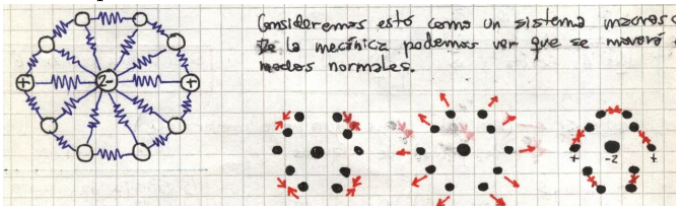 Consideremos esto como un sistema macros
De la mecánica podemos ver que se moverá
modos normales.
+ 2- +
+ -2 +